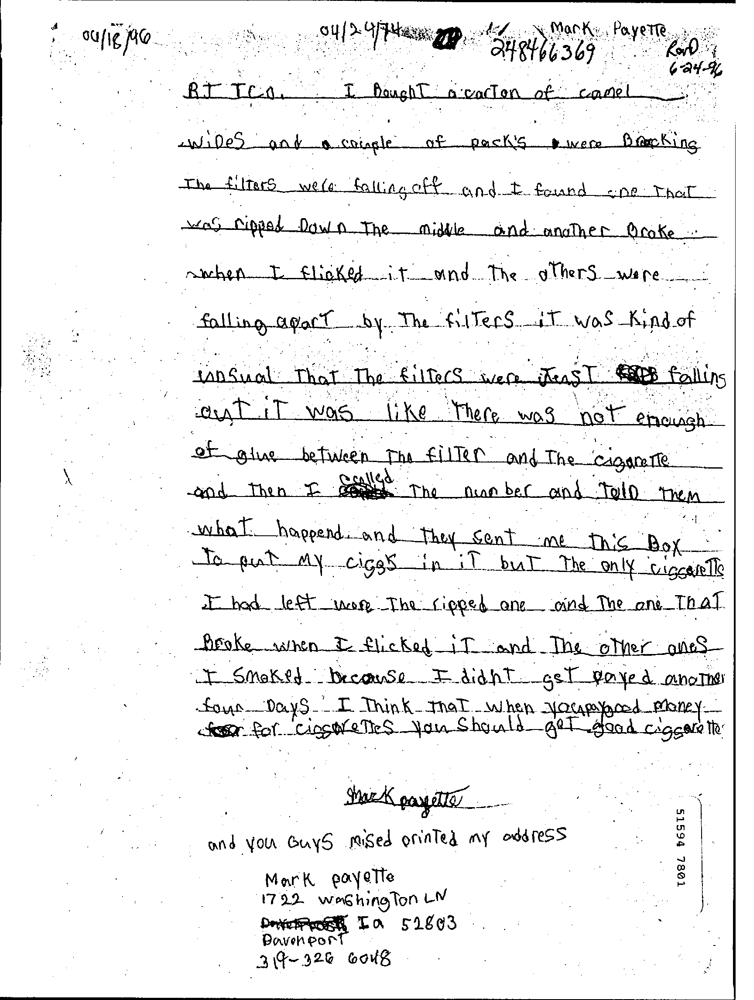 04/18/96 04/24/74 Mark Payette
248466369 Rcvd
6-24-96
RJ TCO. I Bought a carton of camel
wides and a couple of pack's were Bracking
The filters were falling off and I found one That
was ripped Down The middle and another Broke
when I flicked it and The oThers were
falling aparT by The filTers iT was Kind of
unsual That The filters were falling
out iT was like There was not enough
of glue between The filTer and The cigareTTe
and Then I called The number and Told Them
what happend. and They sent me This Box
To put My ciggs in iT buT The only ciggareTTe
I had left were The ripped one and The one ThaT
Broke when I flicked iT and The oTher ones
I smoked because I didnt get payed anoTher
four Days I Think That when you pay good money
for ciggareTTes you should get good ciggareTTe
Mark payette
and you Guys mised printed my address
Mark payeTTe
1722 washingTon LN
Ia 52803
DavenporT
319-326 6048
51594 7801